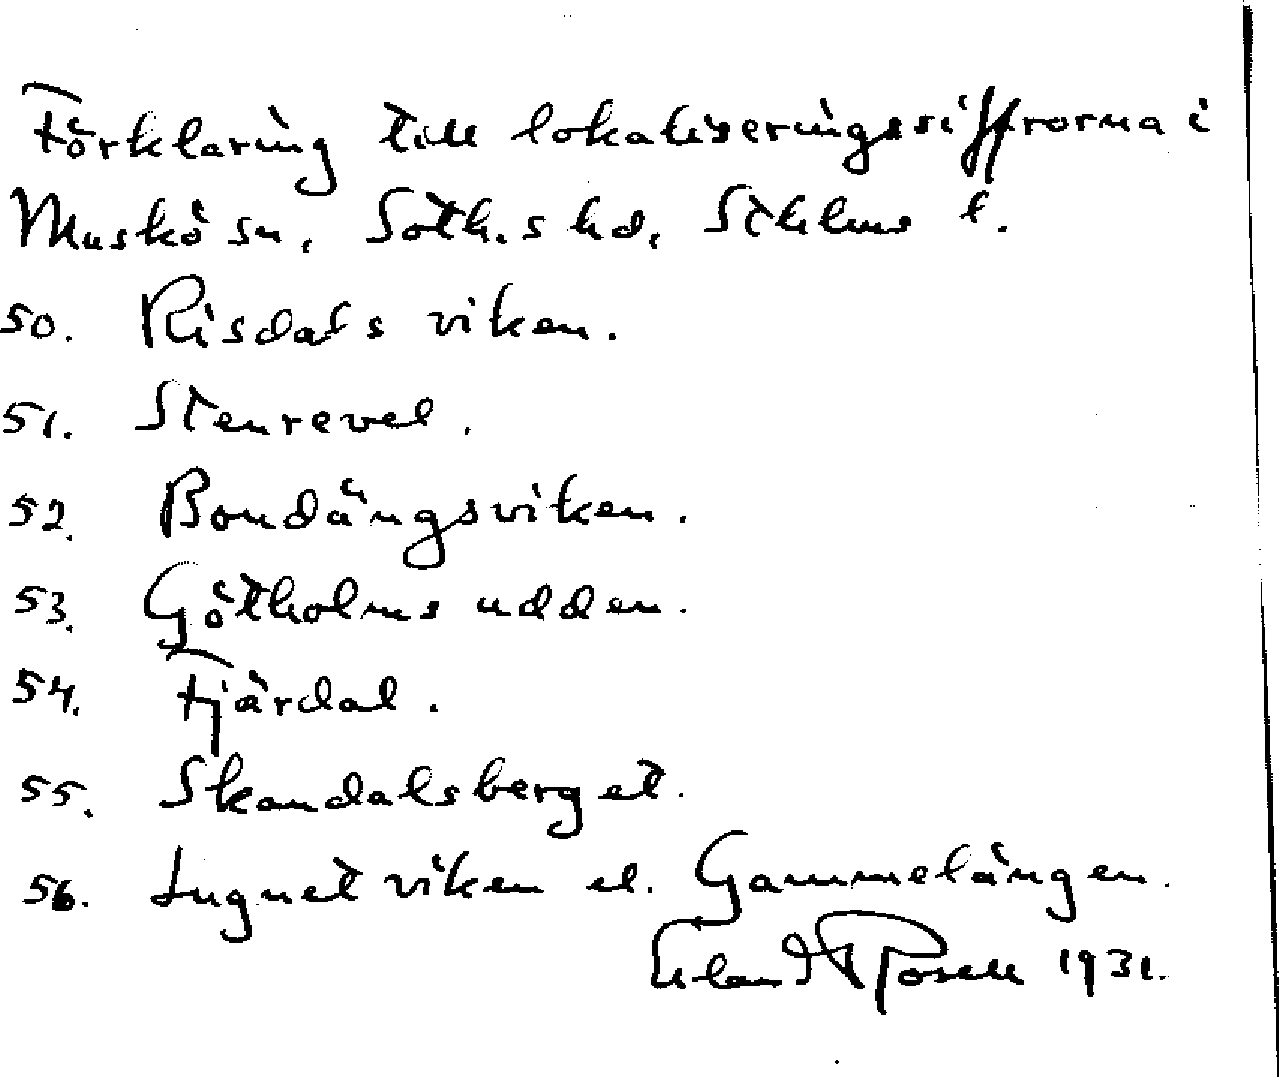 Förklaring till lokaliseringssiffrorna i
Muskö sn, Soth.s hd, Sthlms l.
50. Risdalsviken.
51. Stenrevel.
52. Bondängsviken.
53. Götholmsudden.
54. Fjärdal.
55. Skandalsberget.
56. Lugnetviken el. Gammelängen.
Erland Rosell 1931.